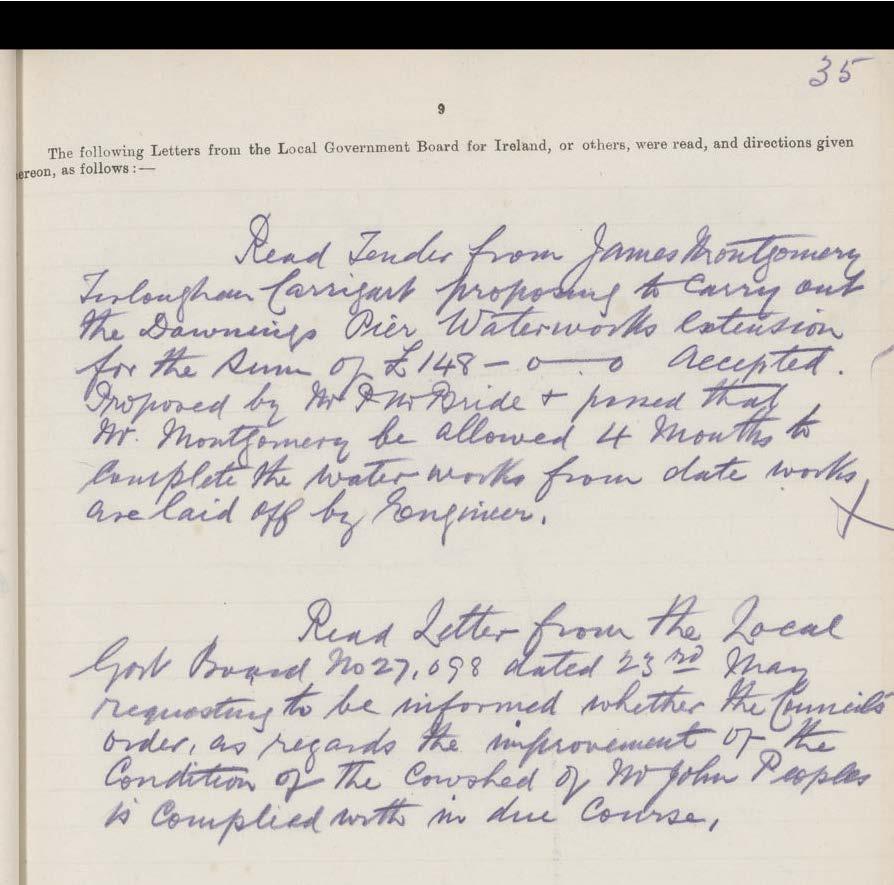 35
9
The following Letters from the Local Government Board for Ireland, or others, were read, and directions given
ereon, as follows:—
Read Tender from James Montgomery
Turloughan Carrigart proposing to carry out
the Downings Pier Waterworks extension
for the sum of £148-0-0 Accepted.
Proposed by Mr P McBride + passed that
Mr. Montgomery be allowed 4 Months to
complete the water works from date works
are laid off by Engineer.
Read Letter from the Local
Govt Board No 27,098 dated 23rd May
requesting to be informed whether the Councils
order, as regards the improvement of the
Condition of the Cowshed of Mr John Peoples
is complied with in due course,